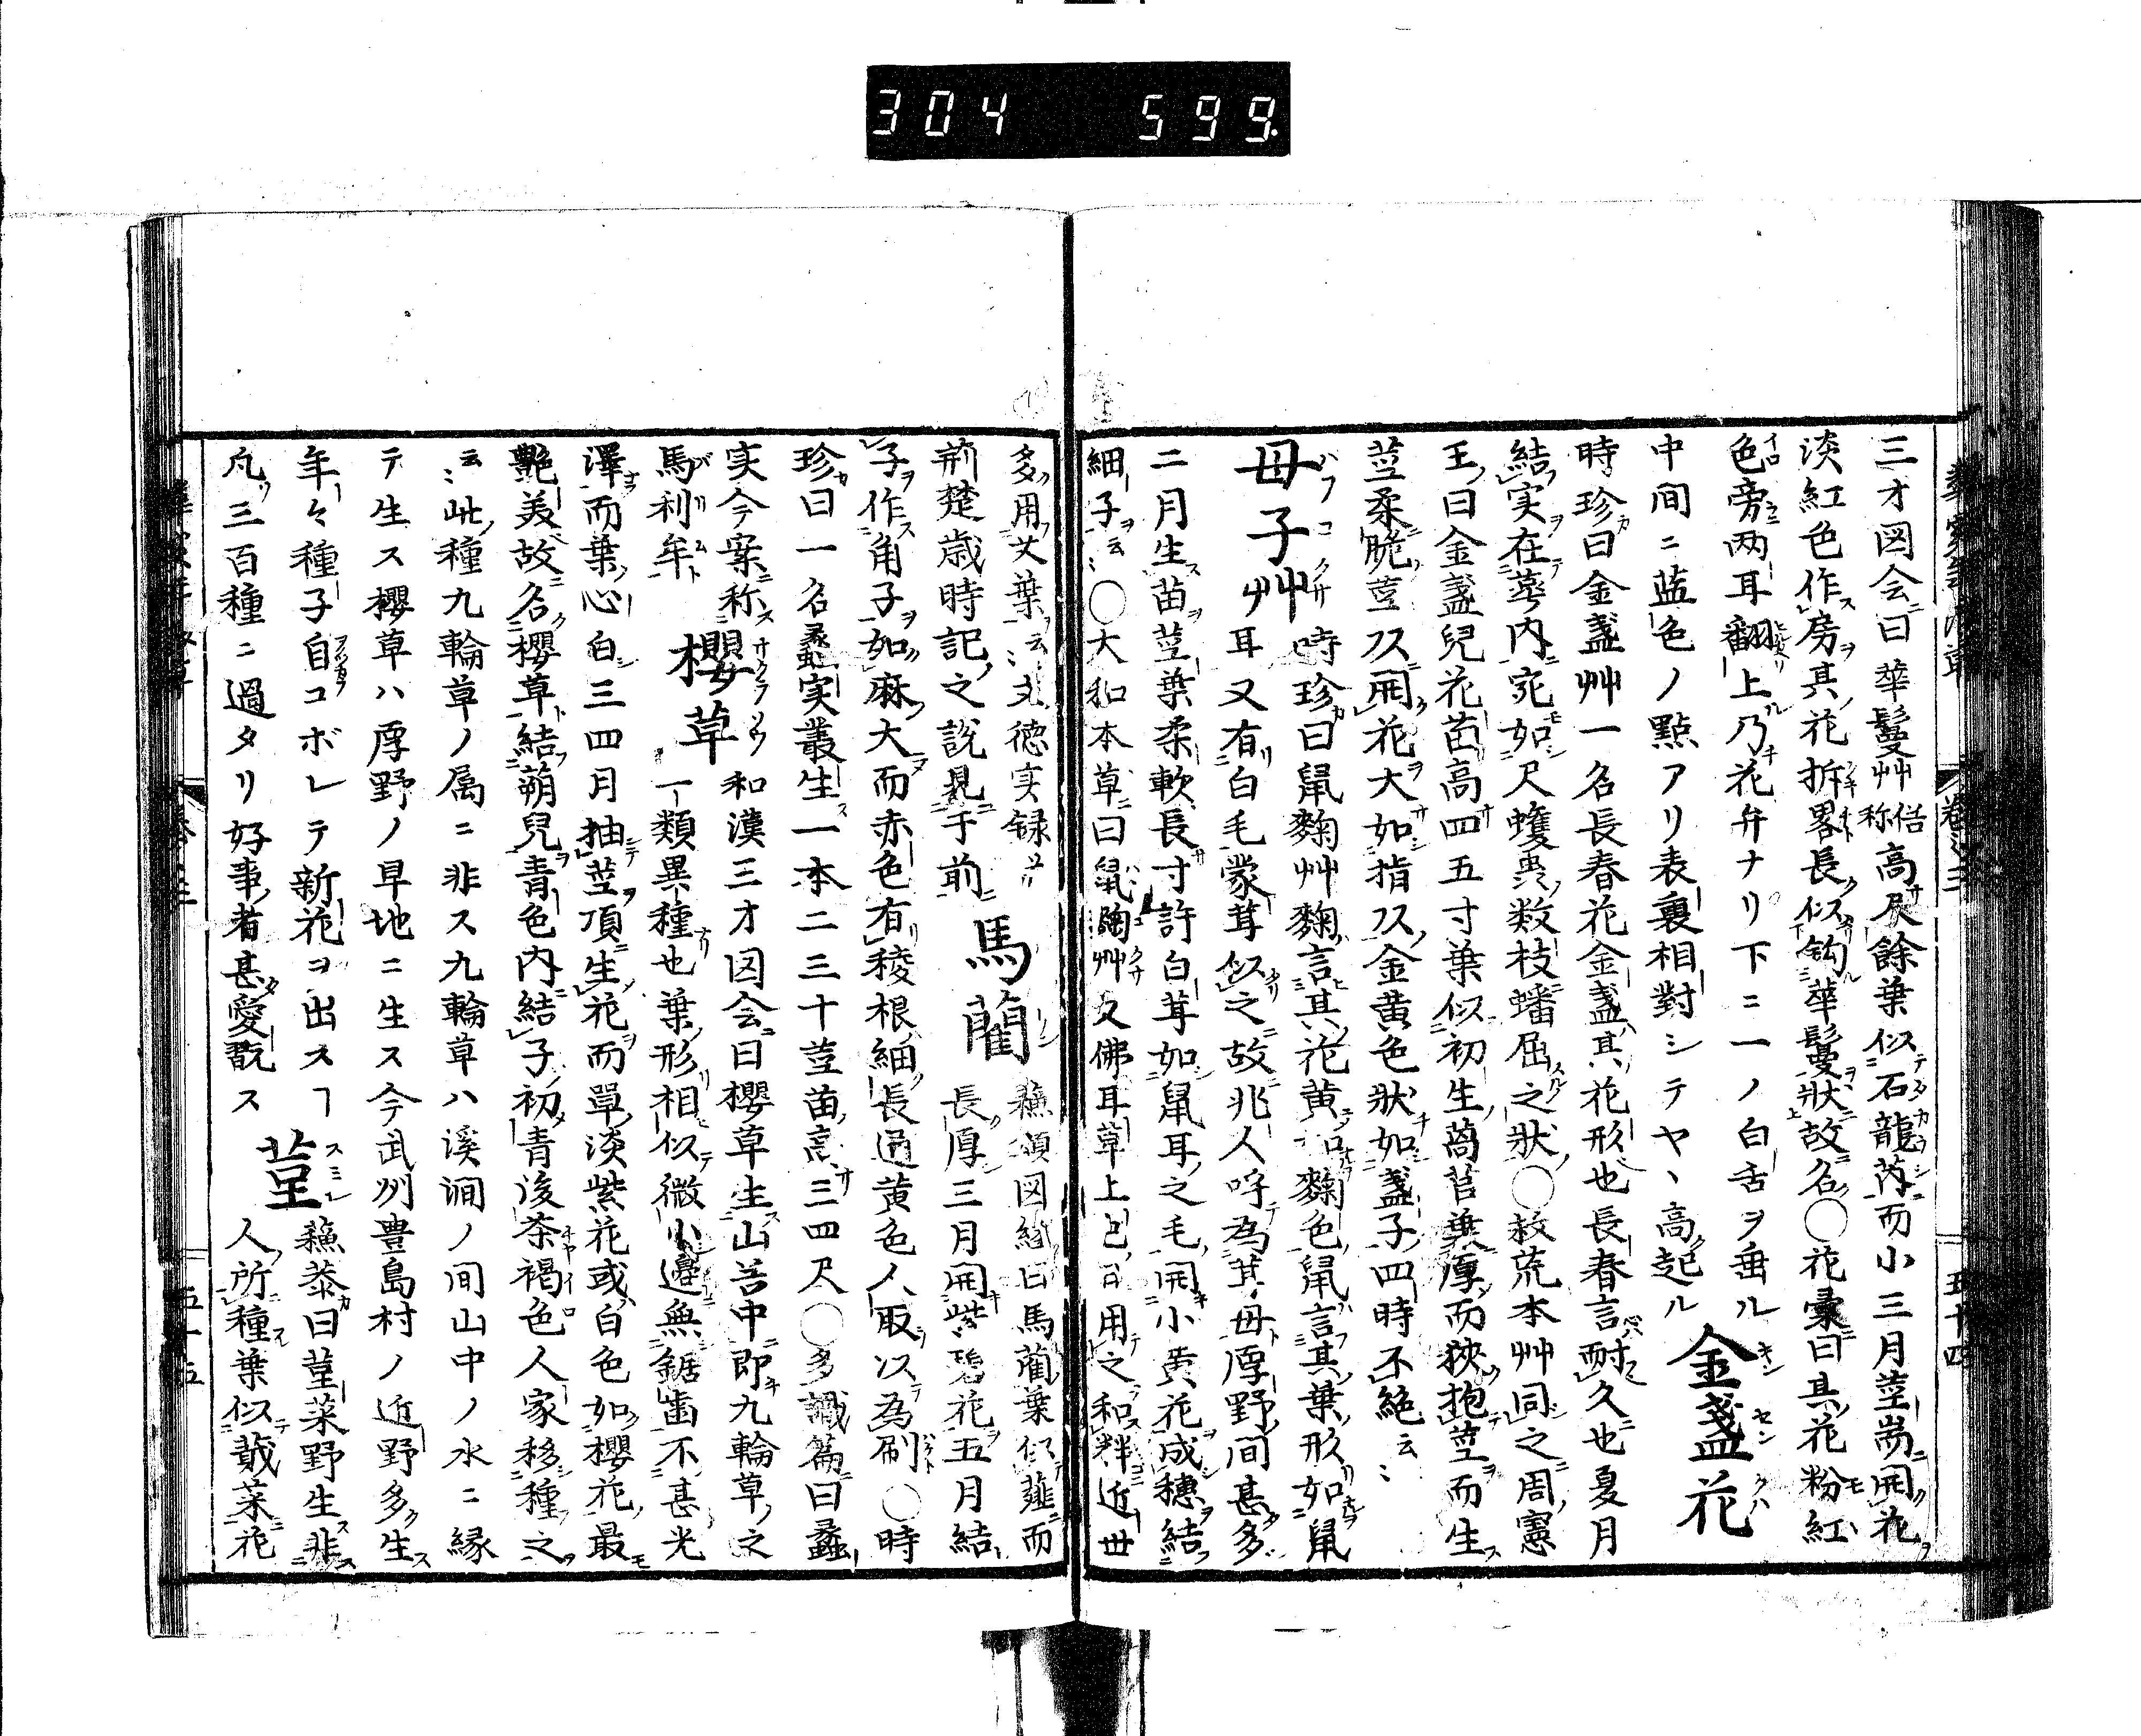 304 599.
三才図会曰華鬘艸俗称高尺餘葉似石龍芮而小三月莖耑開花
淡紅色作房其花拆畧長似鈎華鬘狀故名〇花彙曰其花粉紅
色旁两耳翻上乃花弁ナリ下ニ一ノ白舌ヲ垂ル
中间ニ蓝色ノ點アリ表裏相對シテヤヽ高起ル 金盞花
時珍曰金盞艸一名長春花金盞其花形也長春言耐久也夏月
結实在萼内宛如尺蠖虫数枝蟠屈之狀〇救荒本艸同之周憲
王曰金盞兒花苗高四五寸葉似初生萵苣葉厚而狹抱莖而生
莖柔脆莖頭開花大如指頭金黄色狀如盞子四時不絶云〻
母子艸 時珍曰鼠麴艸麴言其花黄如麴色鼠言其葉形如鼠
耳又有白毛蒙茸似之故北人呼為茸母厚野间甚多
二月生苗莖葉柔軟長寸許白茸如鼠耳之毛開小黄花成穗結
細子云〻〇大和本草曰鼠麴艸又佛耳草上巳日用之和粰近世
多用艾葉云〻文徳实録
荊楚歳時記之說見于前 馬藺 蘇頌図經曰馬藺葉似薤而
長厚三月開紫碧花五月結
子作角子如麻大而赤色有稜根細長通黄色人取以為刷〇時
珍曰一名蠡实叢生一本二三十莖苗高三四尺〇多識篇曰蠡
実今案称
馬利牟 櫻草 和漢三才図会曰櫻草生山谷中即九輪草之
一類異種也葉形相似微小邊無鋸歯不甚光
澤而葉心白三四月抽莖頂生花而單淡紫花或白色如櫻花最
艶美故名櫻草結蒴兒青色内結子初青後茶褐色人家移種之
云〻此種九輪草ノ属ニ非ス九輪草ハ溪澗ノ间山中ノ水ニ縁
テ生ス櫻草ハ厚野ノ早地ニ生ス今武州豊島村ノ近野多生
年々種子自コボレテ新花ヲ出スヿ
凡三百種ニ過タリ好事者甚愛翫ス 菫 蘇恭曰菫菜野生非
人所種葉似蕺菜花
五十四
五十五